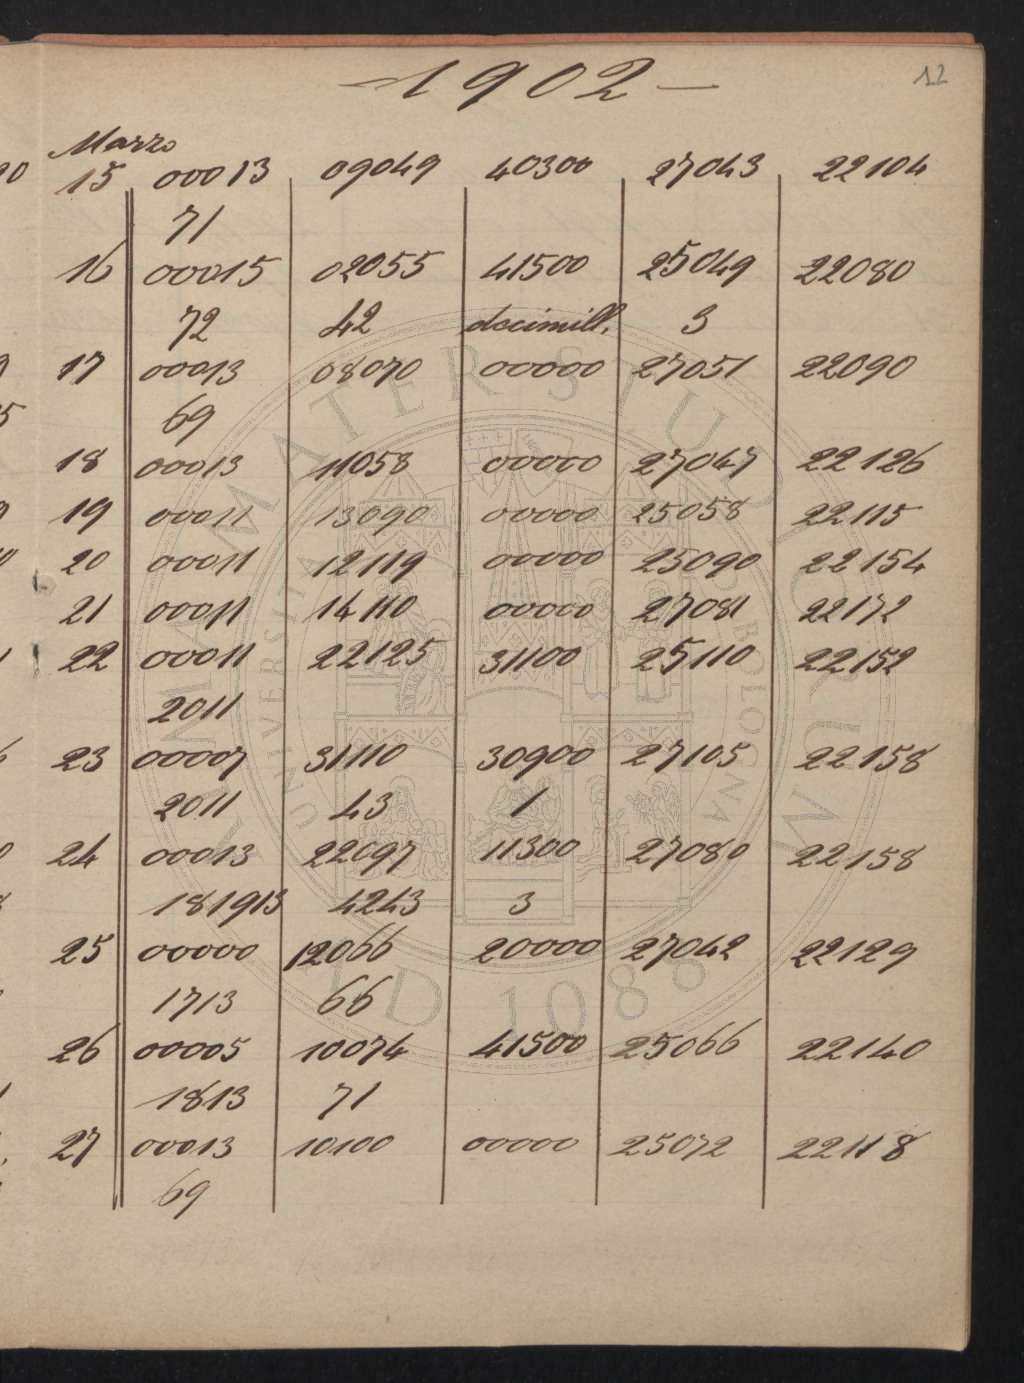 12
-1902-
Marzo
15 00013 09049 40300 27043 22104
71
16 00015 02055 41500 25049 22080
72 42 decimill. 3
17 00013 08070 00000 27051 22090
69
18 00013 11058 00000 27047 22126
19 00011 13090 00000 25058 22115
20 00011 12119 00000 25090 22154
21 00011 14110 00000 27081 22172
22 00011 22125 31100 25110 22152
2011
23 00007 31110 30900 27105 22158
2011 43 1
24 00013 22097 11300 27080 22158
181913 4243 3
25 00000 12066 20000 27042 22129
1713 66
26 00005 10074 41500 25066 22140
1813 71
27 00013 10100 00000 25072 22118
69
ALMA MATER STUDIORUM
UNIVERSITÀ DI BOLOGNA
A.D. 1088